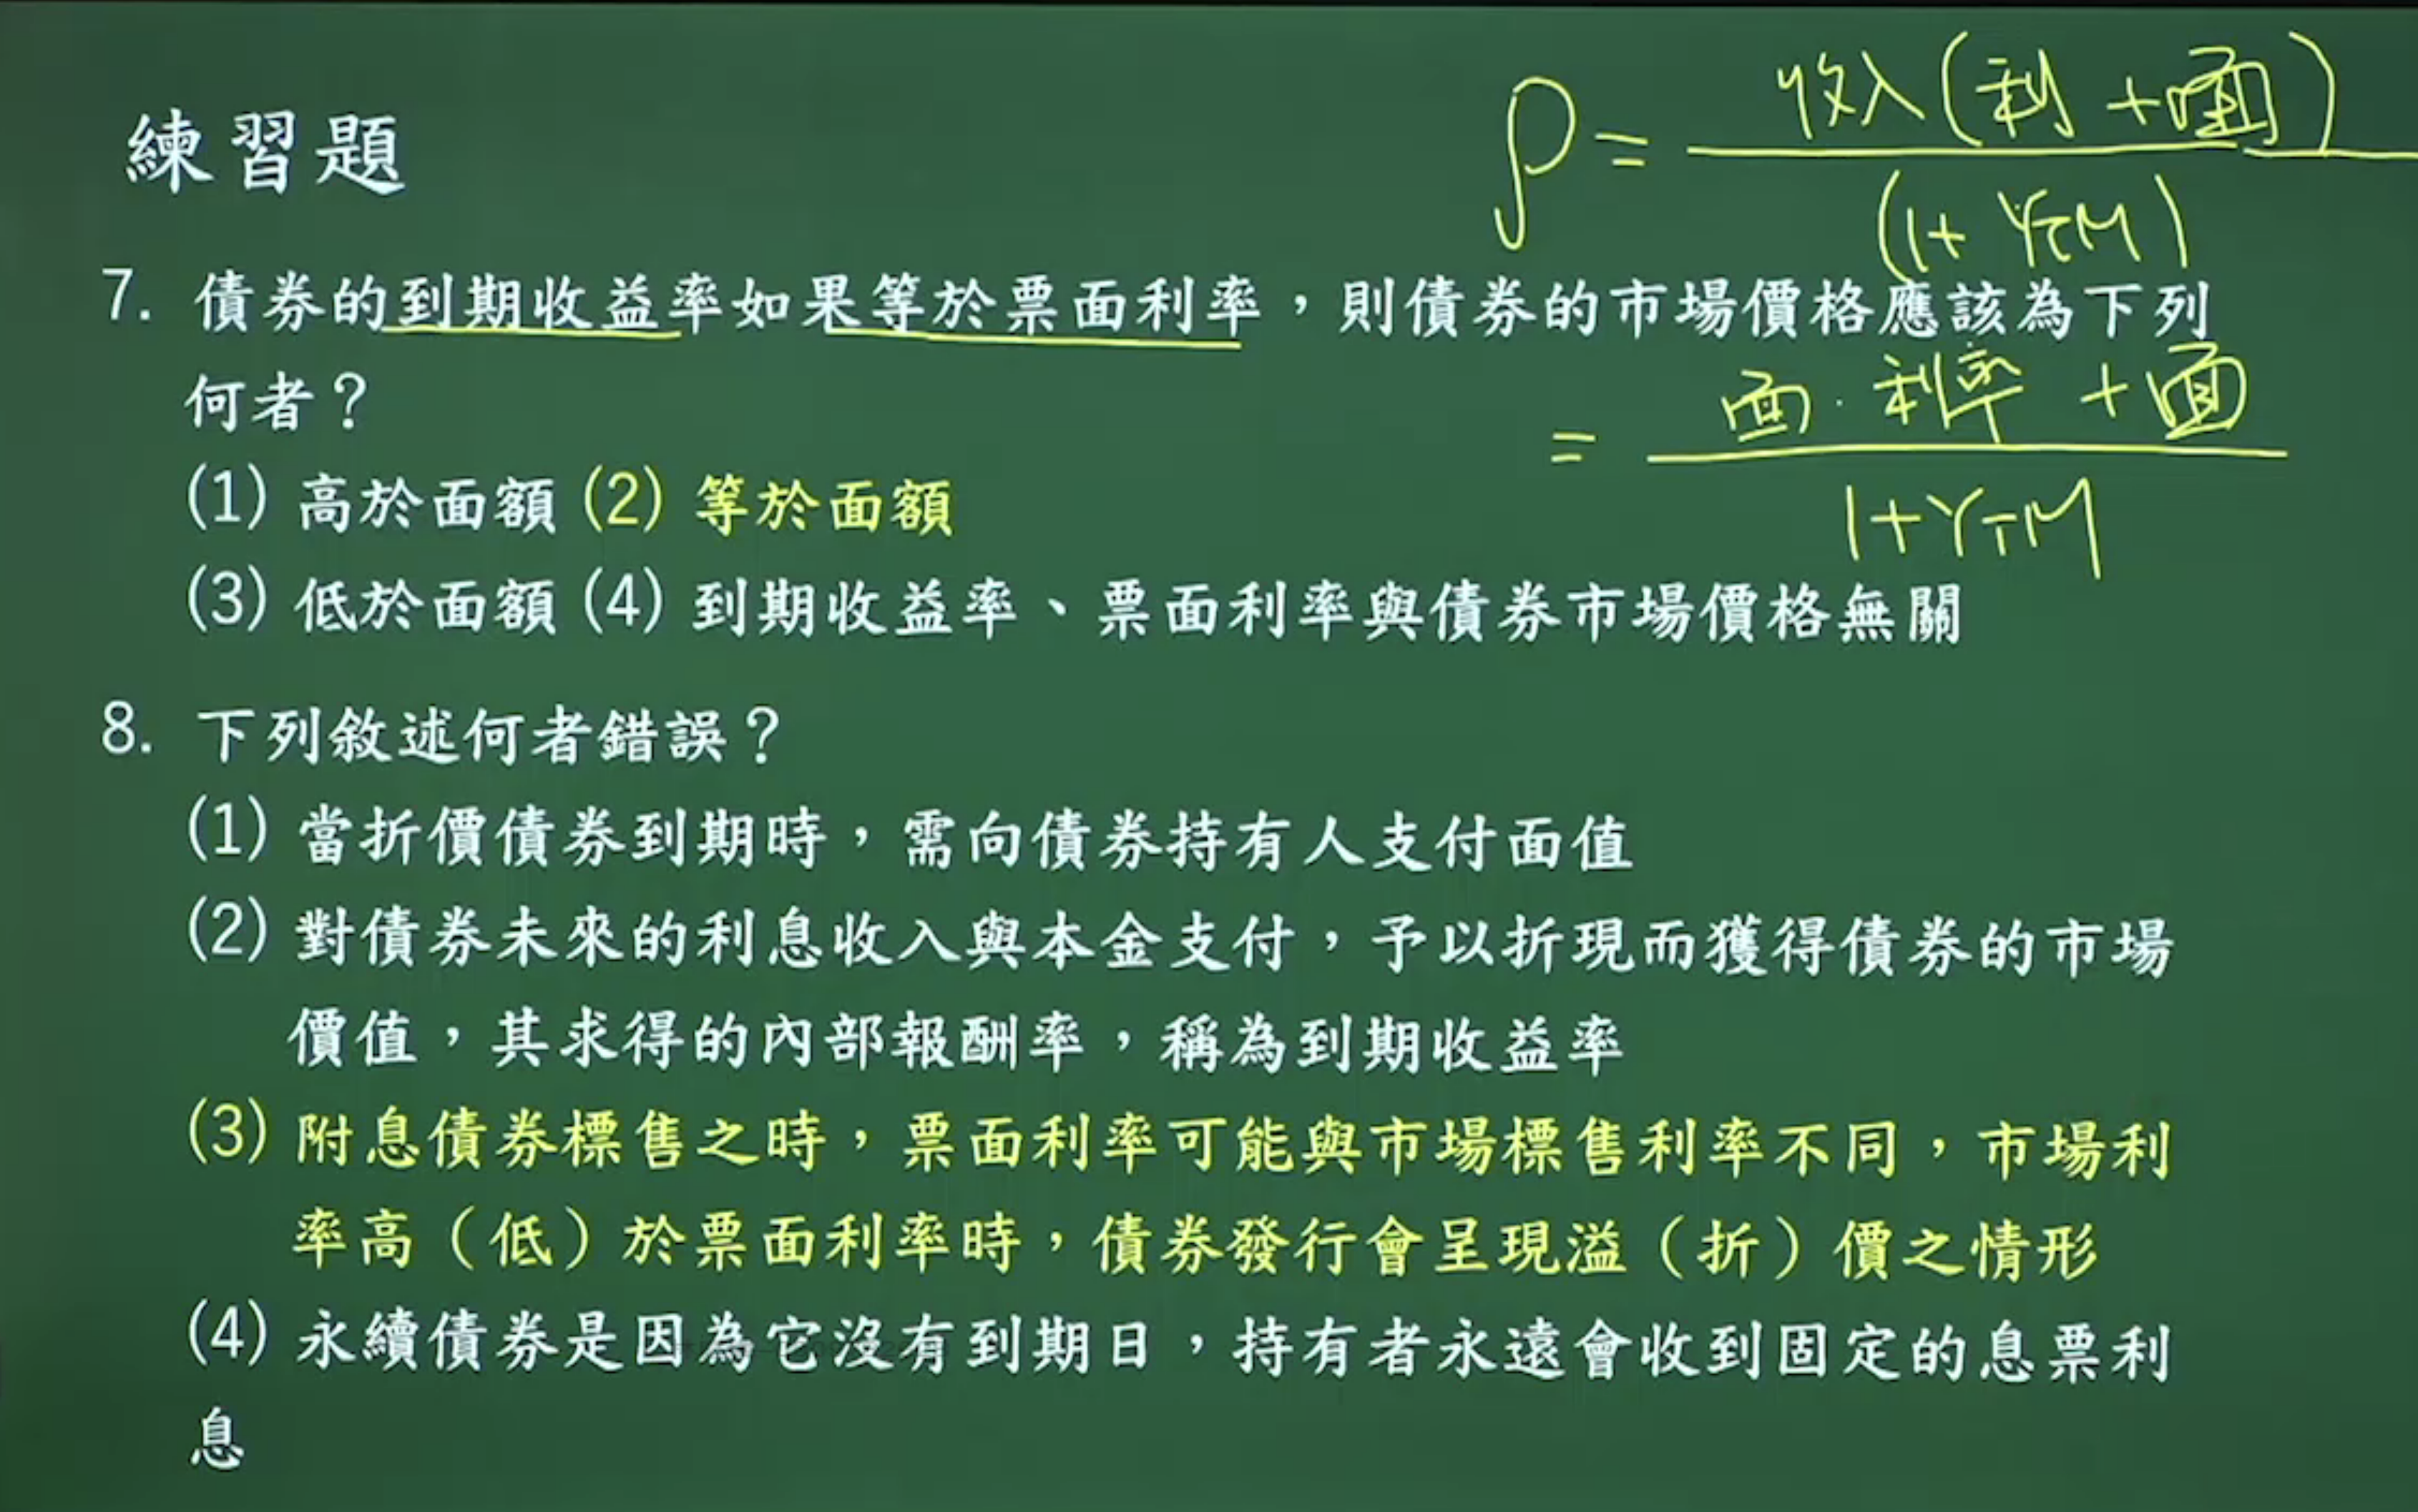 練習題
P = 收入(利+面)
(1+YTM)
7. 債券的到期收益率如果等於票面利率，則債券的市場價格應該為下列
何者？
= 面·利率+面
1+YTM
(1) 高於面額 (2) 等於面額
(3) 低於面額 (4) 到期收益率、票面利率與債券市場價格無關
8. 下列敘述何者錯誤？
(1) 當折價債券到期時，需向債券持有人支付面值
(2) 對債券未來的利息收入與本金支付，予以折現而獲得債券的市場
價值，其求得的內部報酬率，稱為到期收益率
(3) 附息債券標售之時，票面利率可能與市場標售利率不同，市場利
率高（低）於票面利率時，債券發行會呈現溢（折）價之情形
(4) 永續債券是因為它沒有到期日，持有者永遠會收到固定的息票利
息